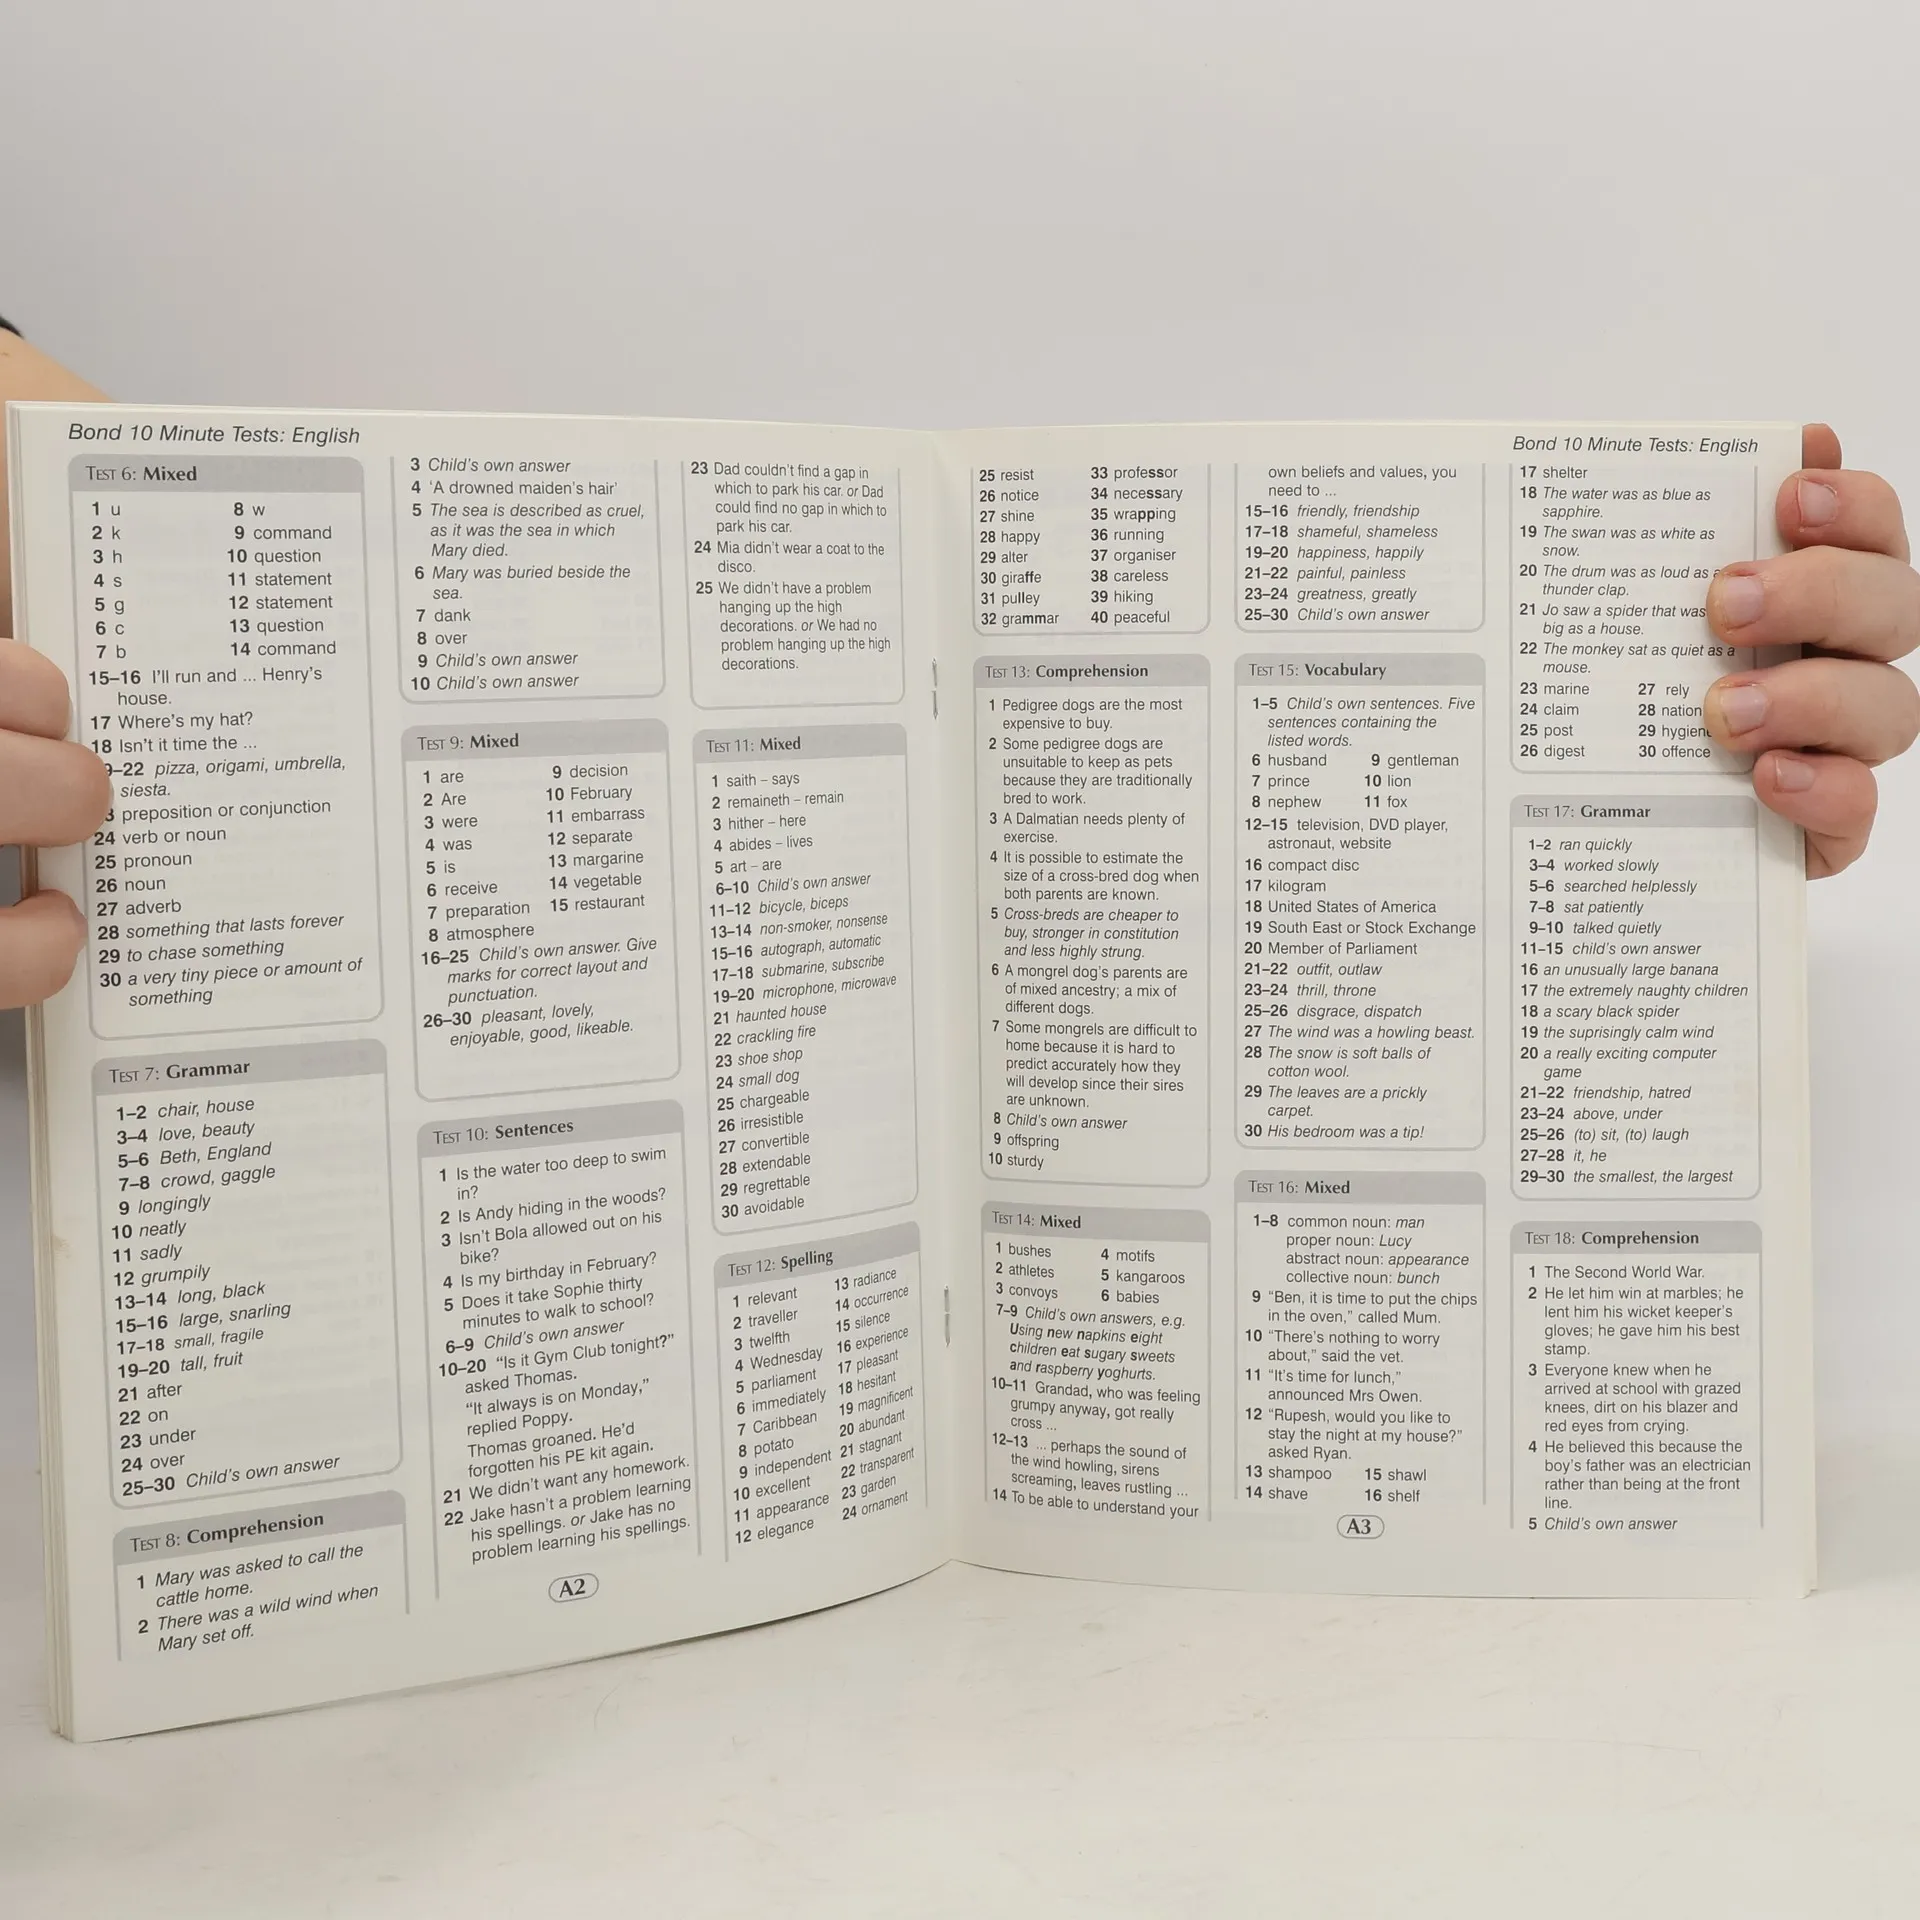 Bond 10 Minute Tests: English
TEST 6: Mixed
1 u
2 k
3 h
4 s
5 g
6 c
7 b
8 w
9 command
10 question
11 statement
12 statement
13 question
14 command
15–16 I'll run and ... Henry's
house.
17 Where's my hat?
18 Isn't it time the ...
–22 pizza, origami, umbrella,
siesta.
3 preposition or conjunction
24 verb or noun
25 pronoun
26 noun
27 adverb
28 something that lasts forever
29 to chase something
30 a very tiny piece or amount of
something
TEST 7: Grammar
1–2 chair, house
3–4 love, beauty
5–6 Beth, England
7–8 crowd, gaggle
9 longingly
10 neatly
11 sadly
12 grumpily
13–14 long, black
15–16 large, snarling
17–18 small, fragile
19–20 tall, fruit
21 after
22 on
23 under
24 over
25–30 Child's own answer
TEST 8: Comprehension
1 Mary was asked to call the
cattle home.
2 There was a wild wind when
Mary set off.
3 Child's own answer
4 'A drowned maiden's hair'
5 The sea is described as cruel,
as it was the sea in which
Mary died.
6 Mary was buried beside the
sea.
7 dank
8 over
9 Child's own answer
10 Child's own answer
TEST 9: Mixed
1 are
2 Are
3 were
4 was
5 is
6 receive
7 preparation
8 atmosphere
9 decision
10 February
11 embarrass
12 separate
13 margarine
14 vegetable
15 restaurant
16–25 Child's own answer. Give
marks for correct layout and
punctuation.
26–30 pleasant, lovely,
enjoyable, good, likeable.
TEST 10: Sentences
1 Is the water too deep to swim
in?
2 Is Andy hiding in the woods?
3 Isn't Bola allowed out on his
bike?
4 Is my birthday in February?
5 Does it take Sophie thirty
minutes to walk to school?
6–9 Child's own answer
10–20 "Is it Gym Club tonight?"
asked Thomas.
"It always is on Monday,"
replied Poppy.
Thomas groaned. He'd
forgotten his PE kit again.
21 We didn't want any homework.
22 Jake hasn't a problem learning
his spellings. or Jake has no
problem learning his spellings.
23 Dad couldn't find a gap in
which to park his car. or Dad
could find no gap in which to
park his car.
24 Mia didn't wear a coat to the
disco.
25 We didn't have a problem
hanging up the high
decorations. or We had no
problem hanging up the high
decorations.
TEST 11: Mixed
1 saith – says
2 remaineth – remain
3 hither – here
4 abides – lives
5 art – are
6–10 Child's own answer
11–12 bicycle, biceps
13–14 non-smoker, nonsense
15–16 autograph, automatic
17–18 submarine, subscribe
19–20 microphone, microwave
21 haunted house
22 crackling fire
23 shoe shop
24 small dog
25 chargeable
26 irresistible
27 convertible
28 extendable
29 regrettable
30 avoidable
TEST 12: Spelling
1 relevant
2 traveller
3 twelfth
4 Wednesday
5 parliament
6 immediately
7 Caribbean
8 potato
9 independent
10 excellent
11 appearance
12 elegance
13 radiance
14 occurrence
15 silence
16 experience
17 pleasant
18 hesitant
19 magnificent
20 abundant
21 stagnant
22 transparent
23 garden
24 ornament
A2
Bond 10 Minute Tests: English
25 resist
26 notice
27 shine
28 happy
29 alter
30 giraffe
31 pulley
32 grammar
33 professor
34 necessary
35 wrapping
36 running
37 organiser
38 careless
39 hiking
40 peaceful
TEST 13: Comprehension
1 Pedigree dogs are the most
expensive to buy.
2 Some pedigree dogs are
unsuitable to keep as pets
because they are traditionally
bred to work.
3 A Dalmatian needs plenty of
exercise.
4 It is possible to estimate the
size of a cross-bred dog when
both parents are known.
5 Cross-breds are cheaper to
buy, stronger in constitution
and less highly strung.
6 A mongrel dog's parents are
of mixed ancestry; a mix of
different dogs.
7 Some mongrels are difficult to
home because it is hard to
predict accurately how they
will develop since their sires
are unknown.
8 Child's own answer
9 offspring
10 sturdy
TEST 14: Mixed
1 bushes
2 athletes
3 convoys
4 motifs
5 kangaroos
6 babies
7–9 Child's own answers, e.g.
Using new napkins eight
children eat sugary sweets
and raspberry yoghurts.
10–11 Grandad, who was feeling
grumpy anyway, got really
cross ...
12–13 ... perhaps the sound of
the wind howling, sirens
screaming, leaves rustling ...
14 To be able to understand your
own beliefs and values, you
need to ...
15–16 friendly, friendship
17–18 shameful, shameless
19–20 happiness, happily
21–22 painful, painless
23–24 greatness, greatly
25–30 Child's own answer
TEST 15: Vocabulary
1–5 Child's own sentences. Five
sentences containing the
listed words.
6 husband
7 prince
8 nephew
9 gentleman
10 lion
11 fox
12–15 television, DVD player,
astronaut, website
16 compact disc
17 kilogram
18 United States of America
19 South East or Stock Exchange
20 Member of Parliament
21–22 outfit, outlaw
23–24 thrill, throne
25–26 disgrace, dispatch
27 The wind was a howling beast.
28 The snow is soft balls of
cotton wool.
29 The leaves are a prickly
carpet.
30 His bedroom was a tip!
TEST 16: Mixed
1–8 common noun: man
proper noun: Lucy
abstract noun: appearance
collective noun: bunch
9 "Ben, it is time to put the chips
in the oven," called Mum.
10 "There's nothing to worry
about," said the vet.
11 "It's time for lunch,"
announced Mrs Owen.
12 "Rupesh, would you like to
stay the night at my house?"
asked Ryan.
13 shampoo
14 shave
15 shawl
16 shelf
17 shelter
18 The water was as blue as
sapphire.
19 The swan was as white as
snow.
20 The drum was as loud as a
thunder clap.
21 Jo saw a spider that was
big as a house.
22 The monkey sat as quiet as a
mouse.
23 marine
24 claim
25 post
26 digest
27 rely
28 nation
29 hygien
30 offence
TEST 17: Grammar
1–2 ran quickly
3–4 worked slowly
5–6 searched helplessly
7–8 sat patiently
9–10 talked quietly
11–15 child's own answer
16 an unusually large banana
17 the extremely naughty children
18 a scary black spider
19 the suprisingly calm wind
20 a really exciting computer
game
21–22 friendship, hatred
23–24 above, under
25–26 (to) sit, (to) laugh
27–28 it, he
29–30 the smallest, the largest
TEST 18: Comprehension
1 The Second World War.
2 He let him win at marbles; he
lent him his wicket keeper's
gloves; he gave him his best
stamp.
3 Everyone knew when he
arrived at school with grazed
knees, dirt on his blazer and
red eyes from crying.
4 He believed this because the
boy's father was an electrician
rather than being at the front
line.
5 Child's own answer
A3